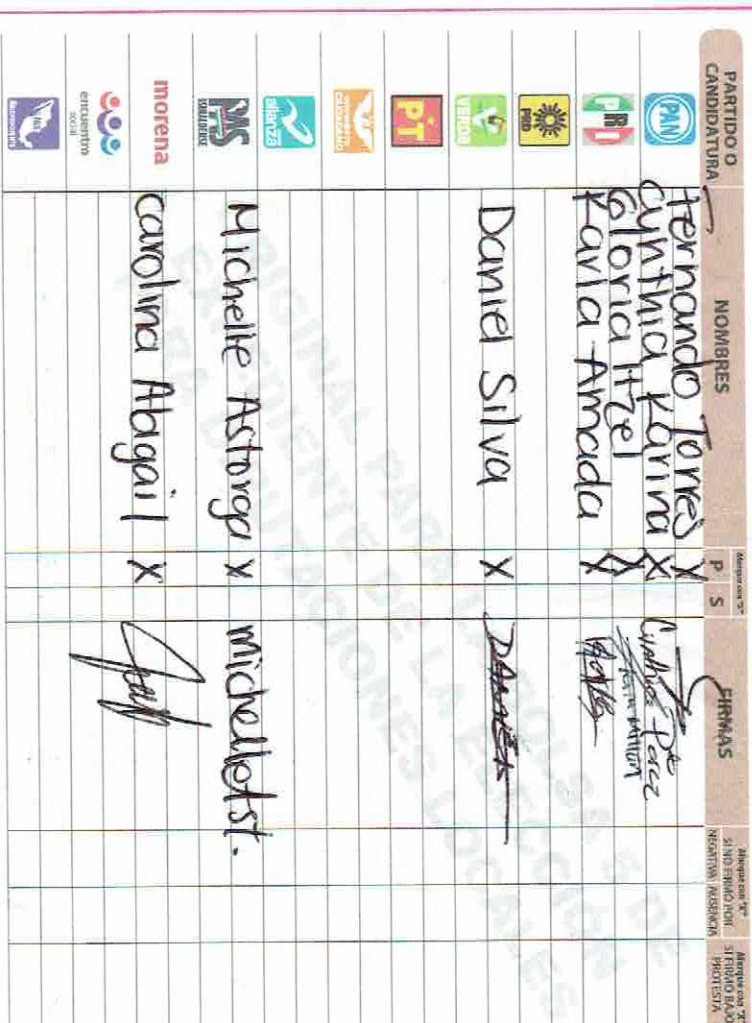 PARTIDO O
CANDIDATURA
NOMBRES
Marque con "X"
P S
FIRMAS
Marque con "X"
SI NO FIRMÓ POR
NEGATIVA AUSENCIA
Marque con "X"
SI FIRMÓ BAJO
PROTESTA
Fernando Torres X
PAN
Cynthia Karina X Cynthia Perez
Gloria Itzel X
PRI
Karla Amada X
PRD
VERDE
Daniel Silva X
PT
CIUDADANO
alianza
PAS
SINALOENSE
Michelle Astorga X MichelleAst.
morena
Carolina Abagail X
encuentro
social
ORIGINAL PARA LA BOLSA 5 DE
EXPEDIENTE DE LA ELECCIÓN
PARA DIPUTACIONES LOCALES